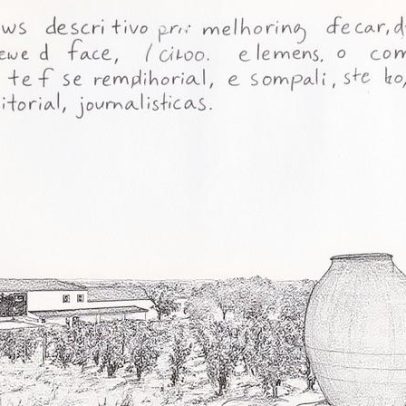 ws descritivo melhoring decar,d
ewed face, elemens. o com
tef se remdihorial, e sompali, ste
itorial, journalisticas.